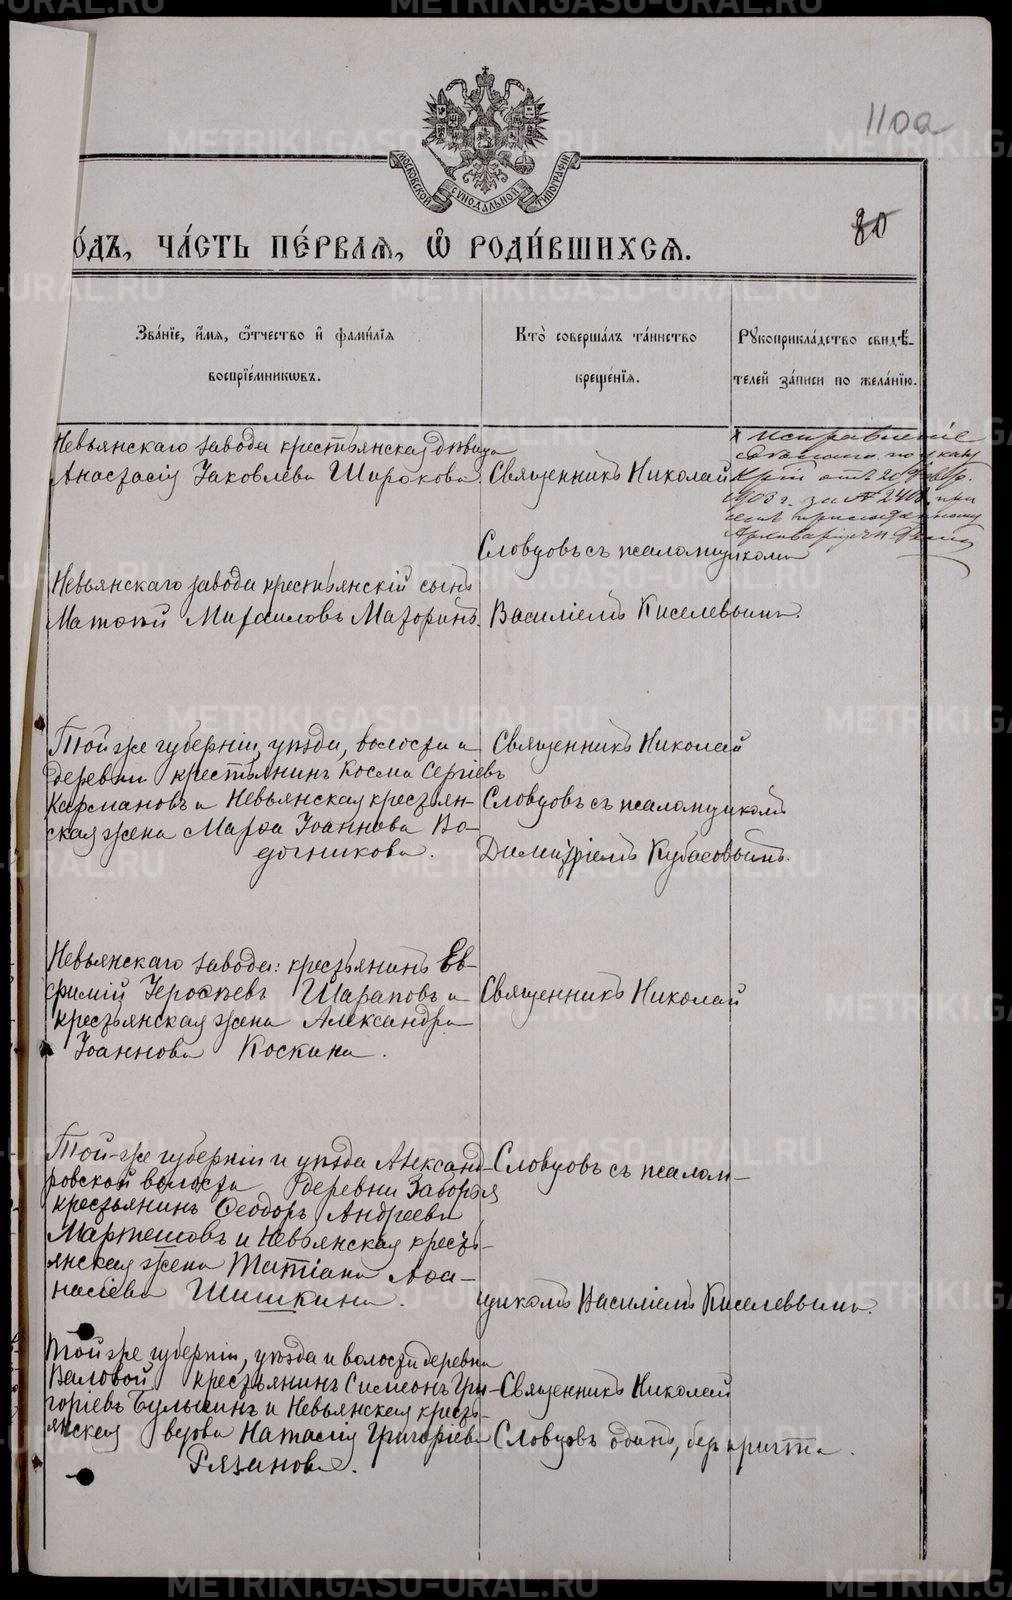 110а
МОСКОВСКОЙ СУНОДАЛЬНОЙ ТИПОГРАФІИ
80
ОДЪ, ЧА́СТЬ ПЕ́РВАѦ, Ѿ РОДИ́ВШИХСѦ.
Зва́нїе, и҆́мѧ, ѻ҆́тчество и҆ фами́лїѧ
воспрїе́мникѡвъ.
Кто̀ соверша́лъ та́инство
креще́нїѧ.
Рꙋкоприкла́дство свидѣ́-
телей за́писи по жела́нїю.
Невьянскаго завода крестьянская дѣвица
Анастасія Іаковлева Широкова.
Священникъ Николай
Словцовъ съ псаломщикомъ
Невьянскаго завода крестьянскій сынъ
Матѳій Михаиловъ Мазоринъ.
Василіемъ Киселевымъ.
х Исправленіе
сдѣлано по указу
отъ 20 Февр.
1903 г. за № 2408. при
семъ
Той-же губерніи, уѣзда, волости и
деревни крестьянинъ Косма Сергіевъ
Кармановъ и Невьянская крестьян-
ская жена Марѳа Іоаннова Во-
дочникова.
Священникъ Николай
Словцовъ съ псаломщикомъ
Димитріемъ Кубасовымъ.
Невьянскаго завода: крестьянинъ Ев-
фимій Іероѳеевъ Шараповъ и
крестьянская жена Александра
Іоаннова Коскина.
Священникъ Николай
Той-же губерніи и уѣзда Александ-
ровской волости деревни
крестьянинъ Ѳеодоръ Андреевъ
Мартешовъ и Невьянская кресть-
янская жена Татіана Аѳа-
насіева Шишкина.
Словцовъ съ псалом-
щикомъ Василіемъ Киселевымъ.
Той же губерніи, уѣзда и волости деревни
Валовой крестьянинъ Симеонъ Гри-
горіевъ Булыгинъ и Невьянская кресть-
янская вдова Наталія Григоріева
Рязанова.
Священникъ Николай
Словцовъ одинъ, безъ причта.
METRIKI.GASO-URAL.RU